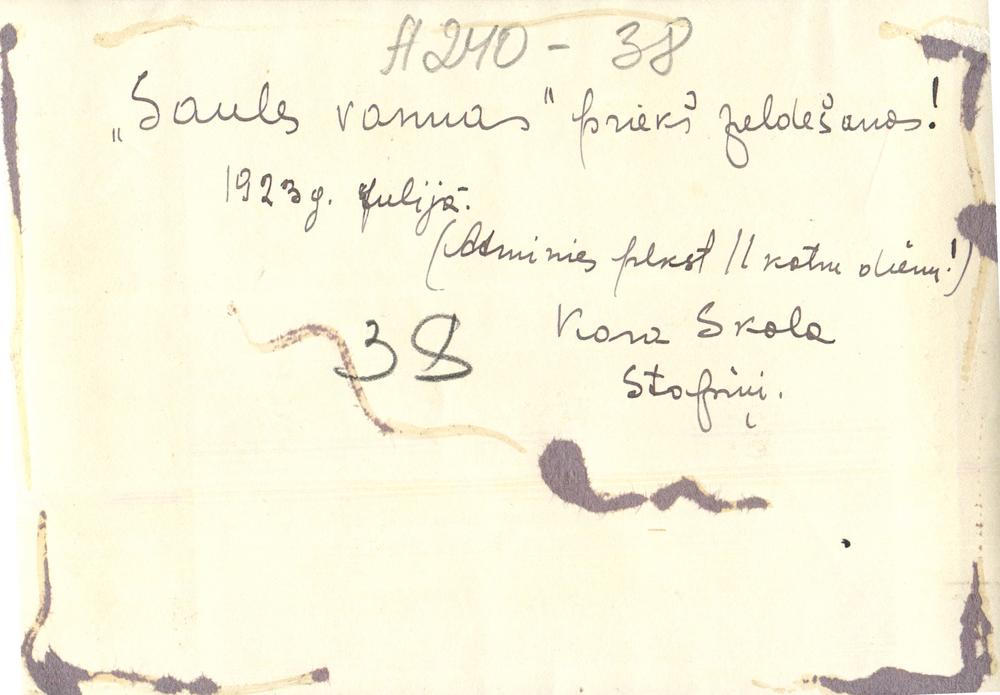 A240 - 38
„Saules vannas" priekš peldēšanas!
1923g. Julijā.
(Atminies plkst 11 katru dienu!)
38
Kara Skola
Stopiņi.